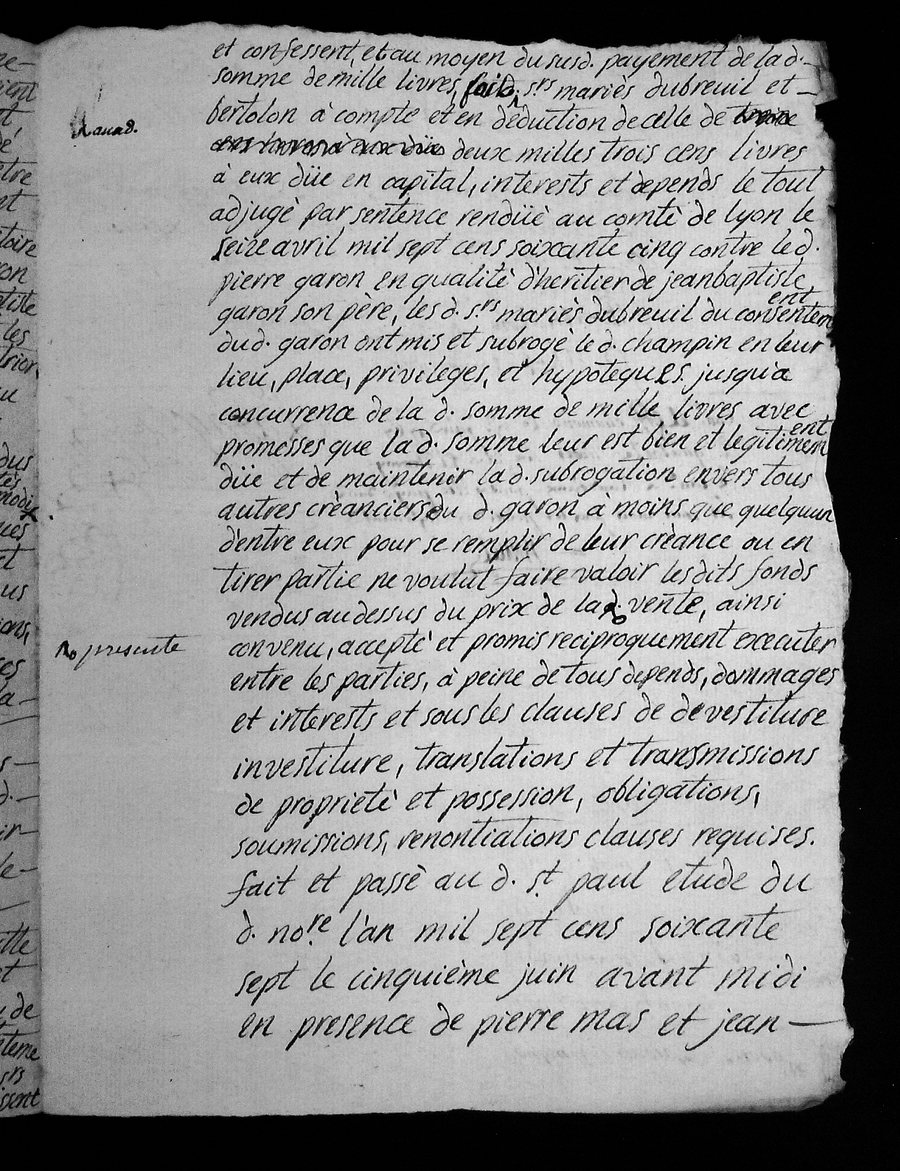 et confessent, et au moyen du susd. payement de la d. -
somme de mille livres, fait, srs mariès dubreuil et -
bertolon à compte et en dèduction de celle de
deux milles trois cens livres
à eux düe en capital, interests et depends le tout
adjugè par sentence rendüe au comtè de lyon le
seize avril mil sept cens soixante cinq contre le d.
pierre garon en qualitè d'heritier de jean baptiste
garon son père, les d. srs mariès dubreuil du consentement
du d. garon ont mis et subrogè le d. champin en leur
lieu, place, privileges, et hypoteques jusqu'a
concurrence de la d. somme de mille livres avec
promesses que la d. somme leur est bien et legitimement
düe et de maintenir la d. subrogation envers tous
autres crèanciers du d. garon à moins que quelquun
d'entre eux pour se remplir de leur crèance ou en
tirer partie ne voulut faire valoir lesdits fonds
vendus au dessus du prix de la d. vente, ainsi
presente
convenu, acceptè et promis reciproquement executer
entre les parties, à peine de tous depends, dommages
et interests et sous les clauses de devestiture
investiture, translations et transmissions
de proprietè et possession, obligations,
soumissions, renontiations clauses requises.
fait et passè au d. st. paul etude du
d. nore. l'an mil sept cens soixante
sept le cinquième juin avant midi
en presence de pierre mas et jean -